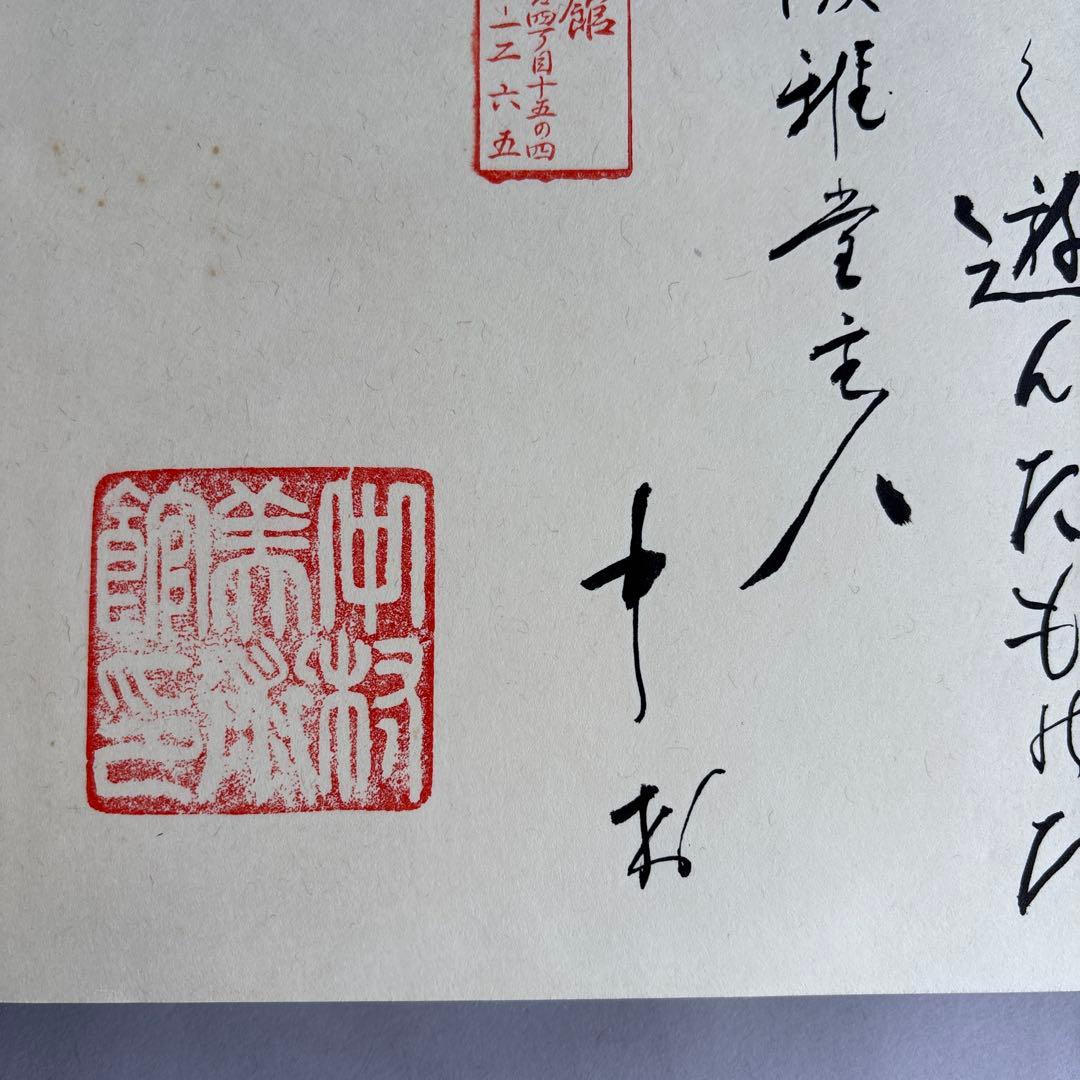 く遊んだもの
雅堂主人
中村
館
四丁目十五の四
二六五
中村
美術
館印